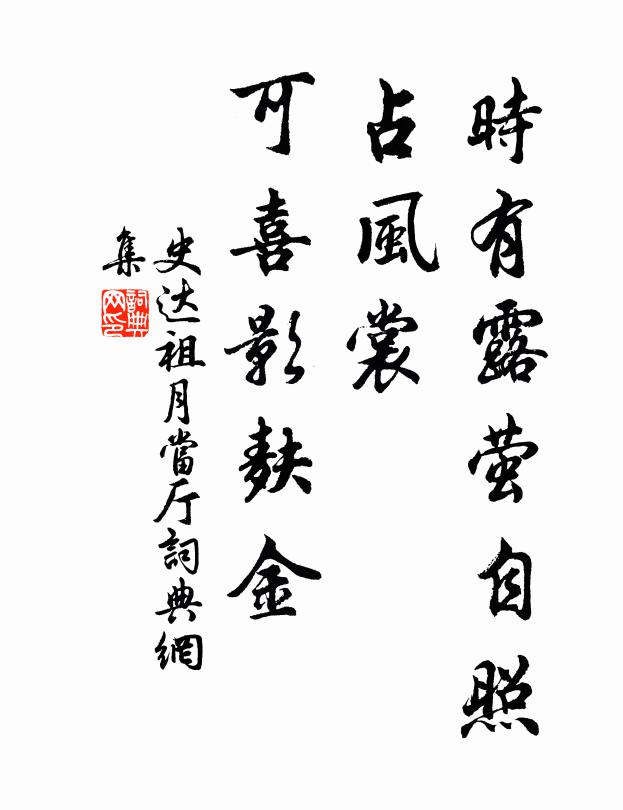 時有露萤自照
占風裳
可喜影麸金
史达祖月當厅詞典網
集
詞典
网印